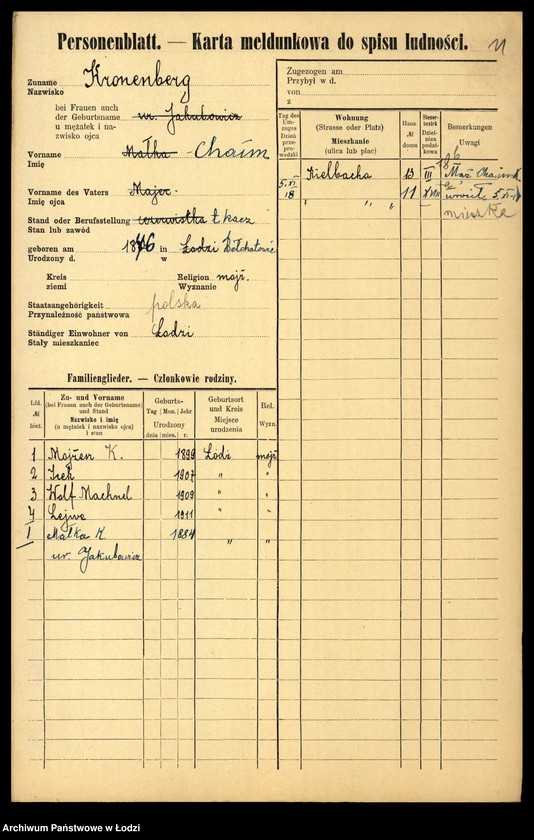 Personenblatt. — Karta meldunkowa do spisu ludności.
Zuname
Nazwisko
Kronenberg
bei Frauen auch
der Geburtsname
u mężatek i na-
zwisko ojca
ur. Jakubowicz
Vorname
Imię
Małka Chaim
Vorname des Vaters
Imię ojca
Majer
Stand oder Berufsstellung
Stan lub zawód
tkacz
geboren am 1876 in Łodzi Bełchatowie
Urodzony d. w
Kreis
ziemi
Religion
Wyznanie
mojż.
Staatsangehörigkeit
Przynależność państwowa
polska
Ständiger Einwohner von
Stały mieszkaniec
Łodzi
Zugezogen am
Przybył w d.
von
z
Tag des Um-
zugos
Dzień
prze-
prowadzki
Wohnung
(Strasse oder Platz)
Mieszkanie
(ulica lub plac)
Haus-
№
domu
Steuer-
bezirk
Dzielnica
podatkowa
Bemerkungen
Uwagi
Kielbacha 13 III Mąż Chaim
5.XI
18 " " " 11 wrócił 5.XI 18
mieszka
Familienglieder. — Członkowie rodziny.
Lfd.
№
bież.
Zu- und Vorname
(bei Frauen auch der Geburtsname)
und Stand
Nazwisko i imię
(u mężatek i nazwisko ojca)
i stan
Geburts-
Tag Mon. Jahr
Urodzony
dnia mies. r.
Geburtsort
und Kreis
Miejsce
urodzenia
Rel.
Wyzn.
1 Mojżen K. 1899 Łódź mojż
2 Icek 1907 " "
3 Wolf Machnel 1909 " "
4 Lejwe 1911 " "
1 Małka K 1884 " "
ur. Jakubowicz
Archiwum Państwowe w Łodzi